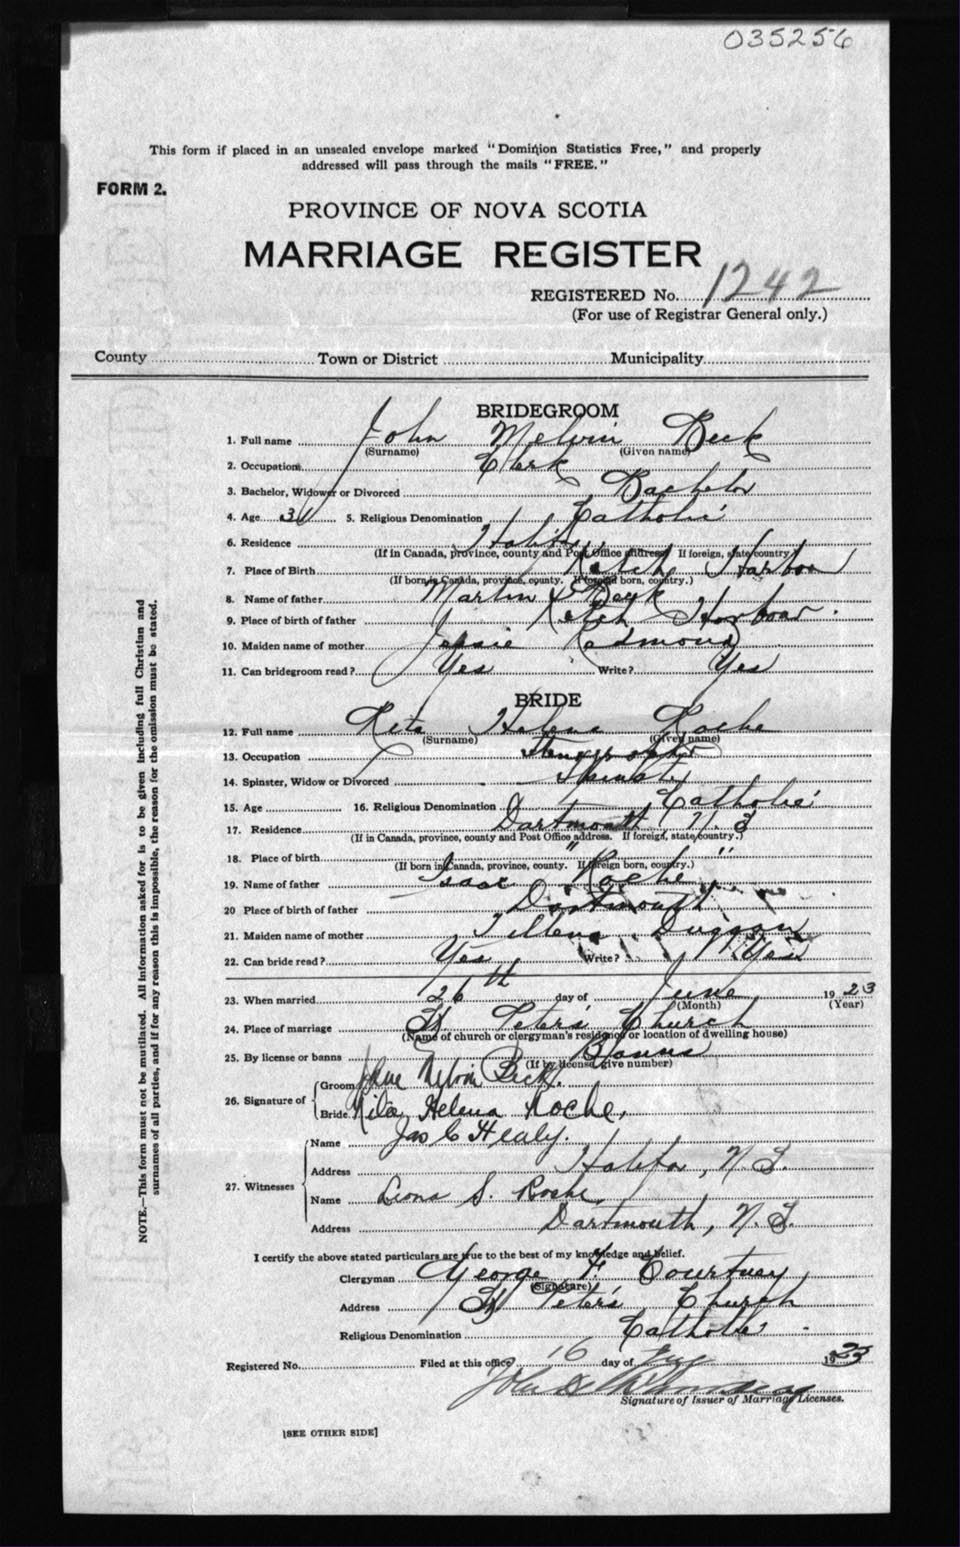 035256
This form if placed in an unsealed envelope marked "Dominion Statistics Free," and properly
addressed will pass through the mails "FREE."
FORM 2.
PROVINCE OF NOVA SCOTIA
MARRIAGE REGISTER
REGISTERED No. 1242
(For use of Registrar General only.)
County Town or District Municipality
BRIDEGROOM
1. Full name John Melvin Beck
(Surname) (Given name)
2. Occupation Clerk
3. Bachelor, Widower or Divorced Bachelor
4. Age 31 5. Religious Denomination Catholic
6. Residence Halifax
(If in Canada, province, county and Post Office address. If foreign, state country.)
7. Place of Birth Ketch Harbour
(If born in Canada, province, county. If foreign born, country.)
8. Name of father Martin Beck
9. Place of birth of father Ketch Harbour
10. Maiden name of mother Jessie Redmond
11. Can bridegroom read? Yes Write? Yes
BRIDE
12. Full name Rita Helena Roche
(Surname) (Given name)
13. Occupation Stenographer
14. Spinster, Widow or Divorced Spinster
15. Age 16. Religious Denomination Catholic
17. Residence Dartmouth N.S
(If in Canada, province, county and Post Office address. If foreign, state, country.)
18. Place of birth " "
(If born in Canada, province, county. If foreign born, country.)
19. Name of father Isaac Roche
20 Place of birth of father Dartmouth
21. Maiden name of mother Duggan
22. Can bride read? Yes Write? Yes
23. When married 26th day of June 1923
(Month) (Year)
24. Place of marriage St Peter's Church
(Name of church or clergyman's residence or location of dwelling house)
25. By license or banns Banns
(If by license, give number)
26. Signature of Groom John Melvin Beck.
Bride Rita Helena Roche.
27. Witnesses
Name Jas C Healy.
Address Halifax, N.S.
Name Leona S. Roche
Address Dartmouth, N.S.
I certify the above stated particulars are true to the best of my knowledge and belief.
Clergyman George F. Courtney
(Signature)
Address St Peter's Church
Religious Denomination Catholic
Registered No. Filed at this office 16 day of 1923
Signature of Issuer of Marriage Licenses.
[SEE OTHER SIDE]
NOTE.—This form must not be mutilated. All information asked for is to be given including full Christian and
surnames of all parties, and if for any reason this is impossible, the reason for the omission must be stated.